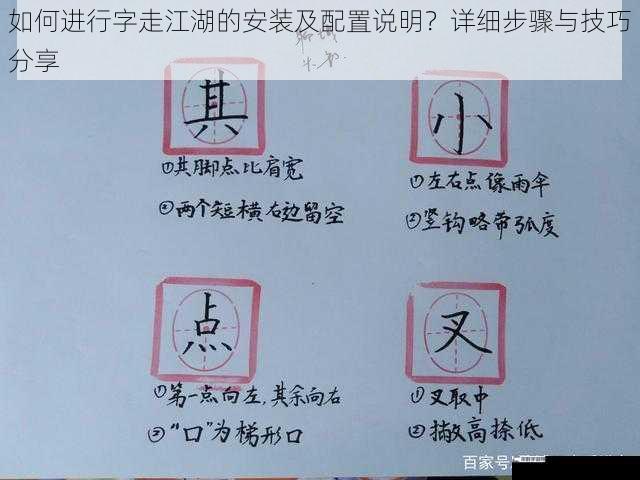 如何进行字走江湖的安装及配置说明？详细步骤与技巧
分享
其
小
①其脚点比肩宽
②两个短横右边留空
①左右点像雨伞
②竖钩略带弧度
点
叉
①第一点向左，其余向右
②“口”为梯形口
①叉取中
②撇高捺低
百家号